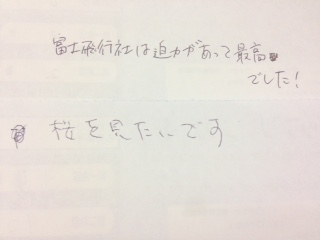 富士飛行社は迫力があって最高
でした!
桜を見たいです